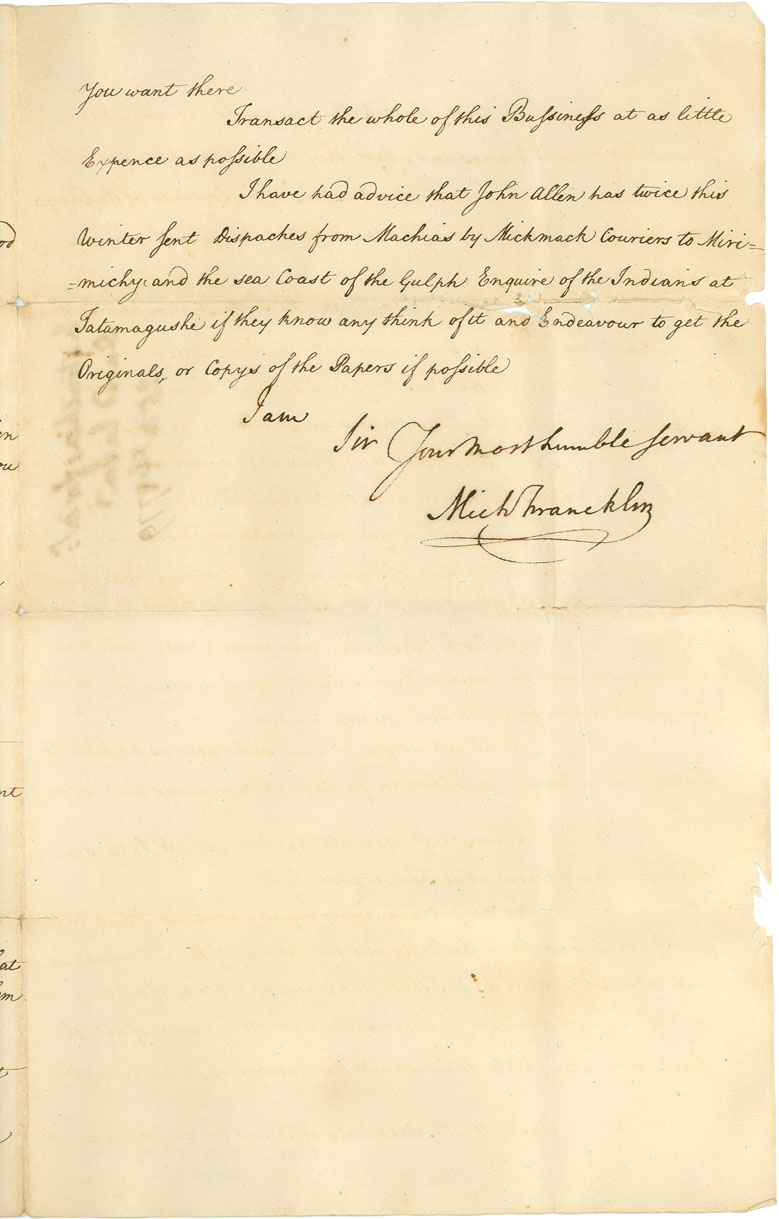 You want there
Transact the whole of this Bussiness at as little
Expence as possible
I have had advice that John Allen has twice this
Winter sent Dispaches from Machias by Mickmack Couriers to Miri=
=michy and the sea Coast of the Gulph Enquire of the Indians at
Tatamagushe if they know any think of it and Endeavour to get the
Originals, or Copys of the Papers if possible
I am
Sir Your most humble servant
Mich Francklin